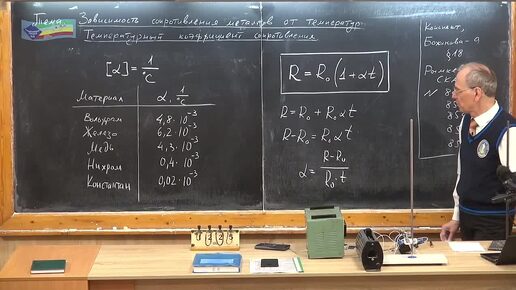 Тема Зависимость сопротивления металлов от температур
Температурный коэффициент сопротивления
[α] = 1/°C
Материал α, 1/°C
Вольфрам 4,8·10⁻³
Железо 6,2·10⁻³
Медь 4,3·10⁻³
Нихром 0,4·10⁻³
Константан 0,02·10⁻³
R = R₀(1+αt)
R = R₀ + R₀αt
R-R₀ = R₀αt
α = R-R₀/R₀·t
Божинова-9
§18